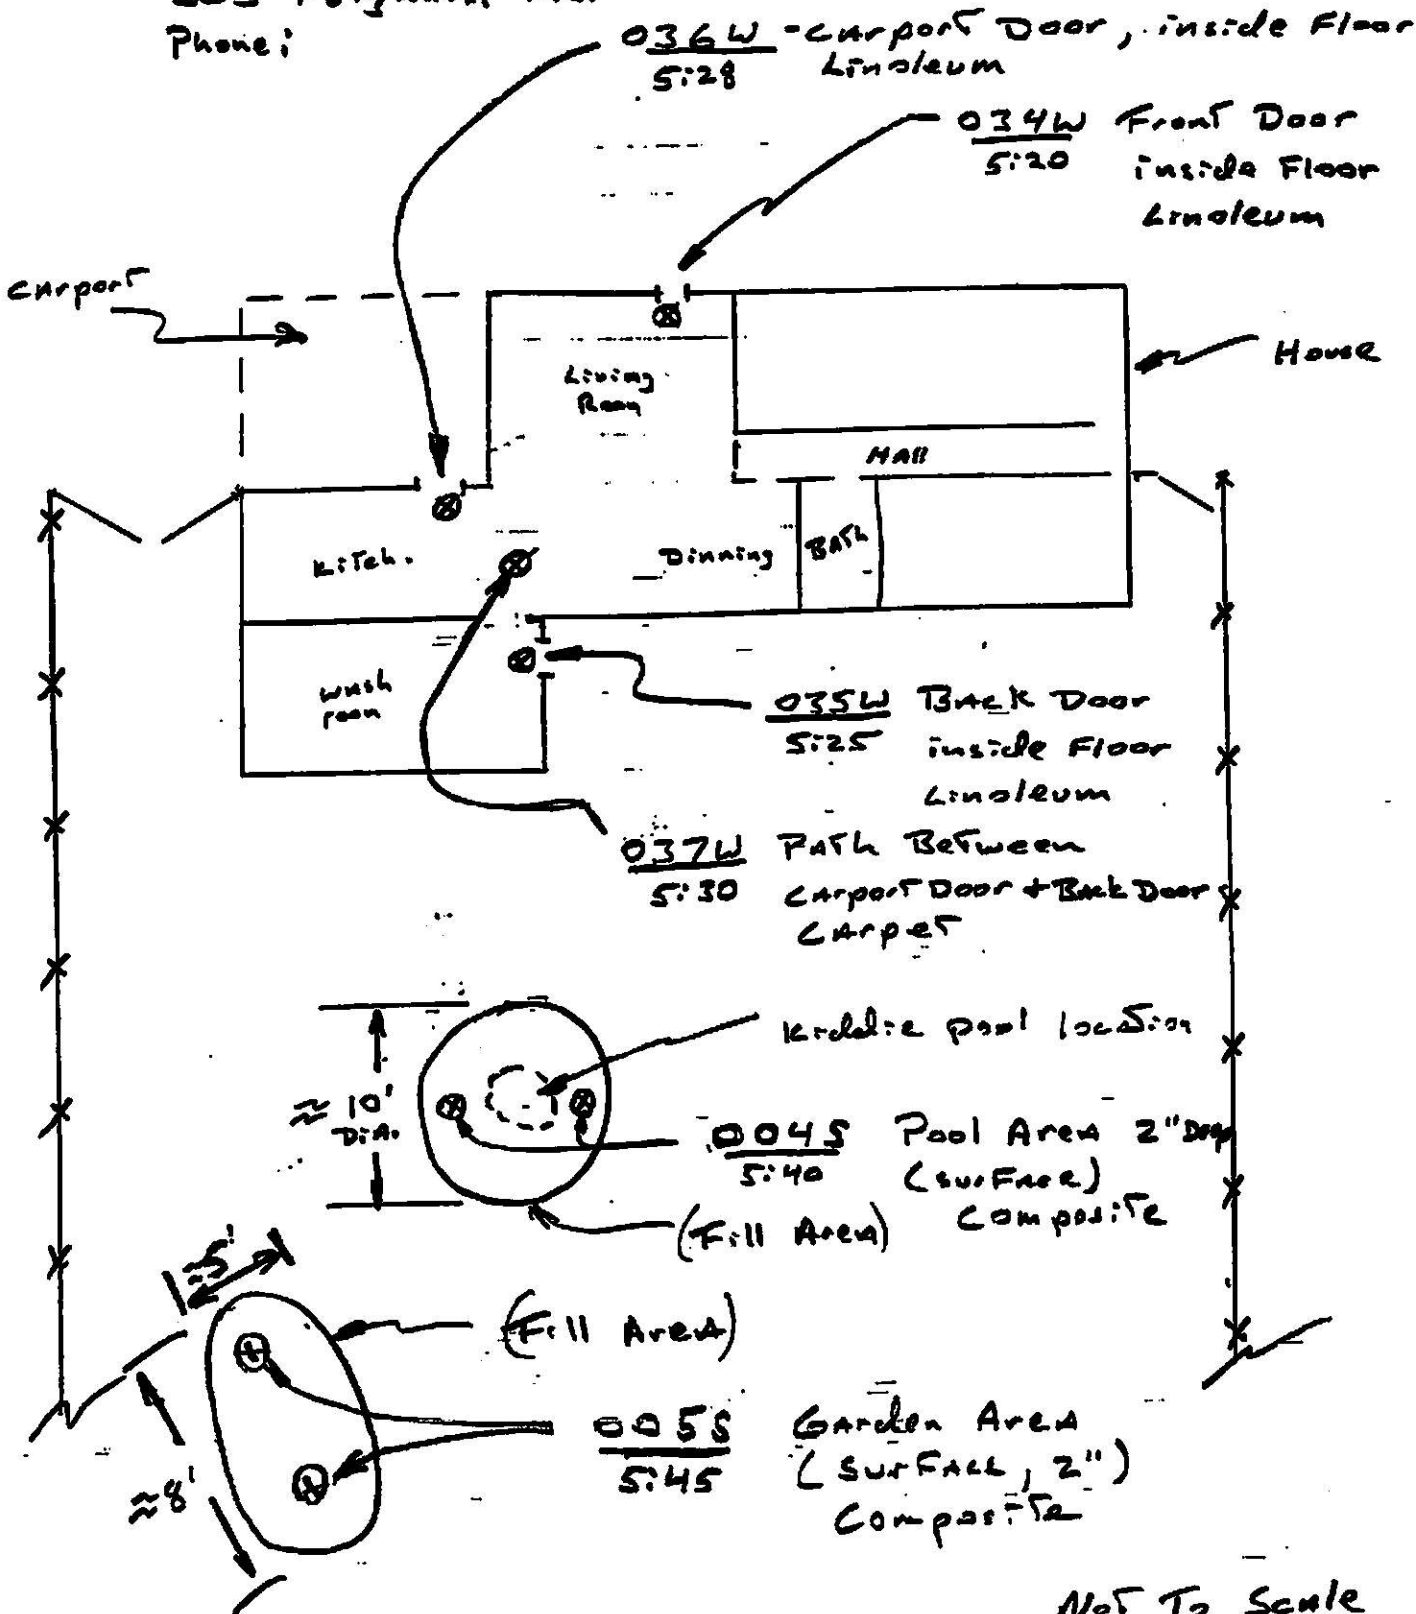 Phone:
036W - Carport Door, inside Floor
5:28 Linoleum
034W Front Door
5:20 inside Floor
Linoleum
Carport
House
Living
Room
Hall
Kitch.
Dinning
Bath
Wash
room
035W Back Door
5:25 inside Floor
Linoleum
037W Path Between
5:30 Carport Door + Back Door
Carpet
Kiddie pool location
≈ 10'
DiA.
004S Pool Area 2" Deep
5:40 (surface)
Composite
(Fill Area)
≈5'
(Fill Area)
005S Garden Area
5:45 (surface, 2")
Composite
≈8'
Not To Scale